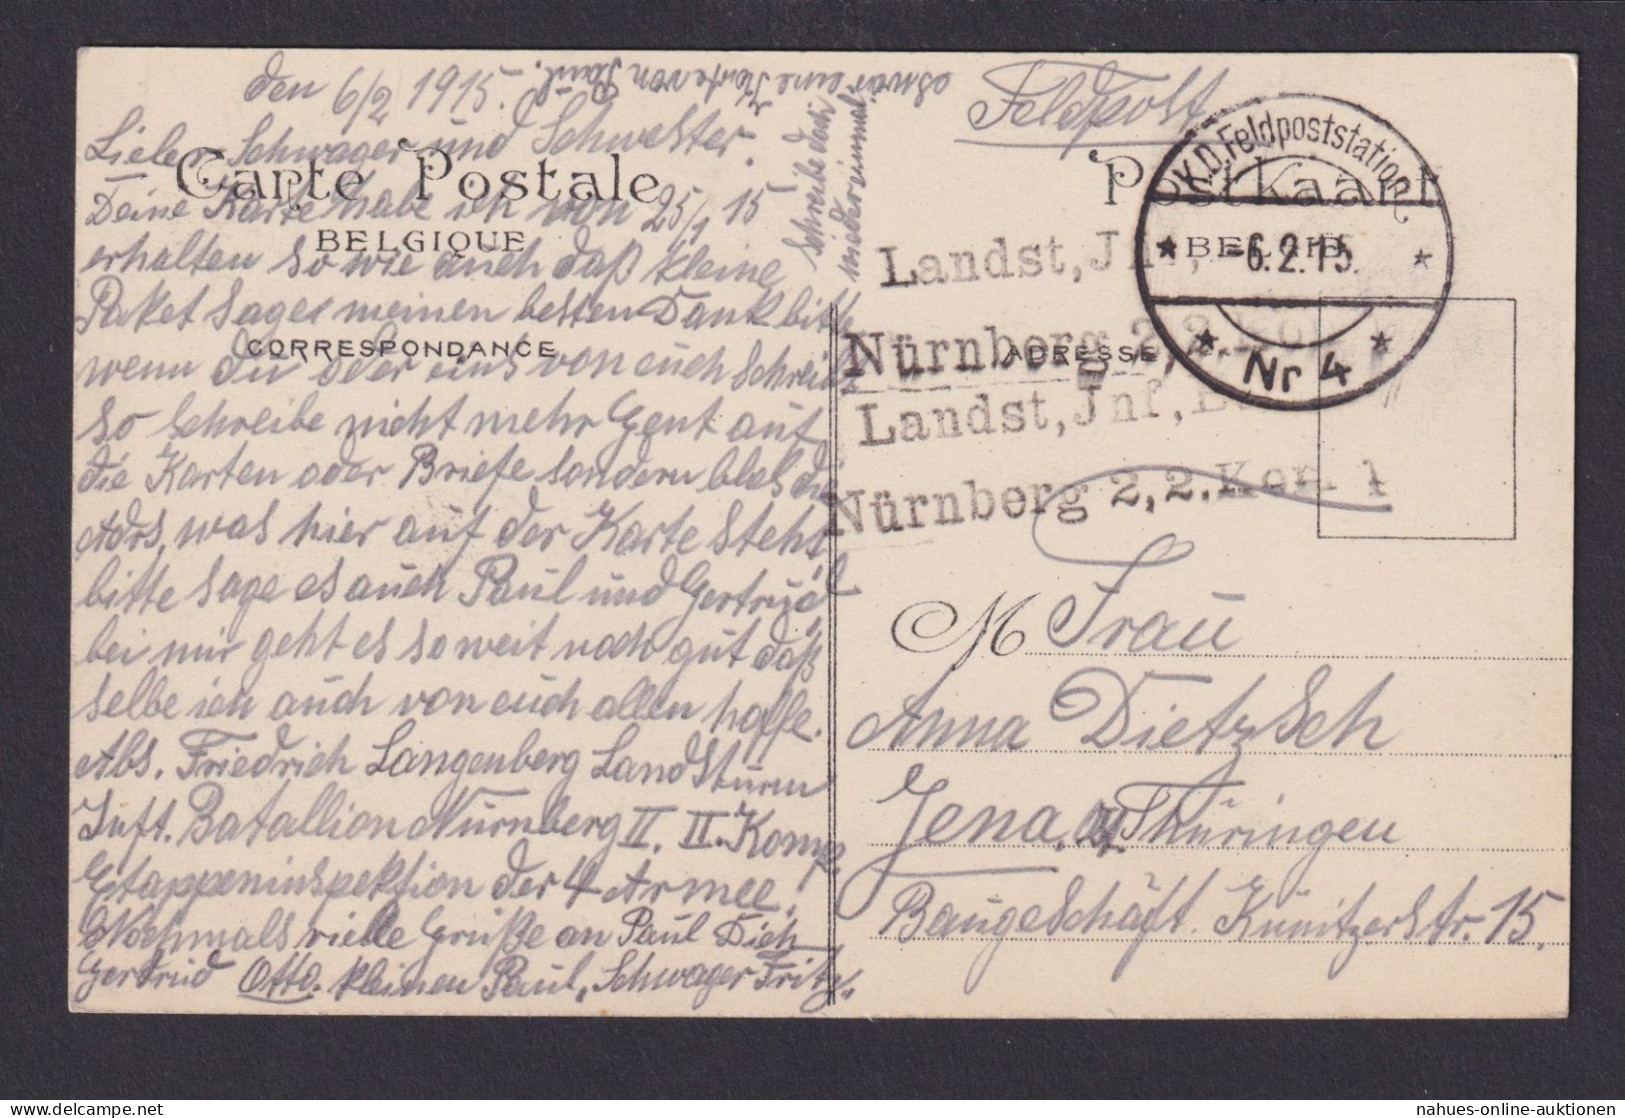 den 6/2 1915.
Lieber Schwager und Schwester.
Deine Karte habe ich von 25/1 15
erhalten so wie auch daß kleine
Paket sage meinen besten Dank bitte
wenn du oder eins von euch schreibt
so schreibe nicht mehr Gent auf
die Karten oder Briefe sondern blos die
Adrs, was hier auf der Karte steht
bitte sage es auch Paul und Gertrud
bei mir geht es soweit noch gut daß
selbe ich auch von euch allen hoffe.
Abs. Friedrich Langenberg Landsturm
Inft. Batallion Nürnberg II. II. Komp
Etappeninspektion der 4 Armee.
Nochmals vielle Grüße an Paul Dich
Gertrud Otto. kleinen Paul, Schwager Fritz
schreibe doch
wiedereinmal
es wär eine Karte von Paul.
Carte Postale
BELGIQUE
CORRESPONDANCE
Feldpost
Postkaart
BELGIË
ADRESSE
K.D. Feldpoststation
-6.2.15.
Nr 4
Landst, Jnf,
Nürnberg 2, 2.
Landst, Jnf,
Nürnberg 2, 2. Kom
M Frau
Anna Dietzsch
Jena, Thüringen
Baugeschäft. Kunitzerstr. 15.
nahues-online-auktionen